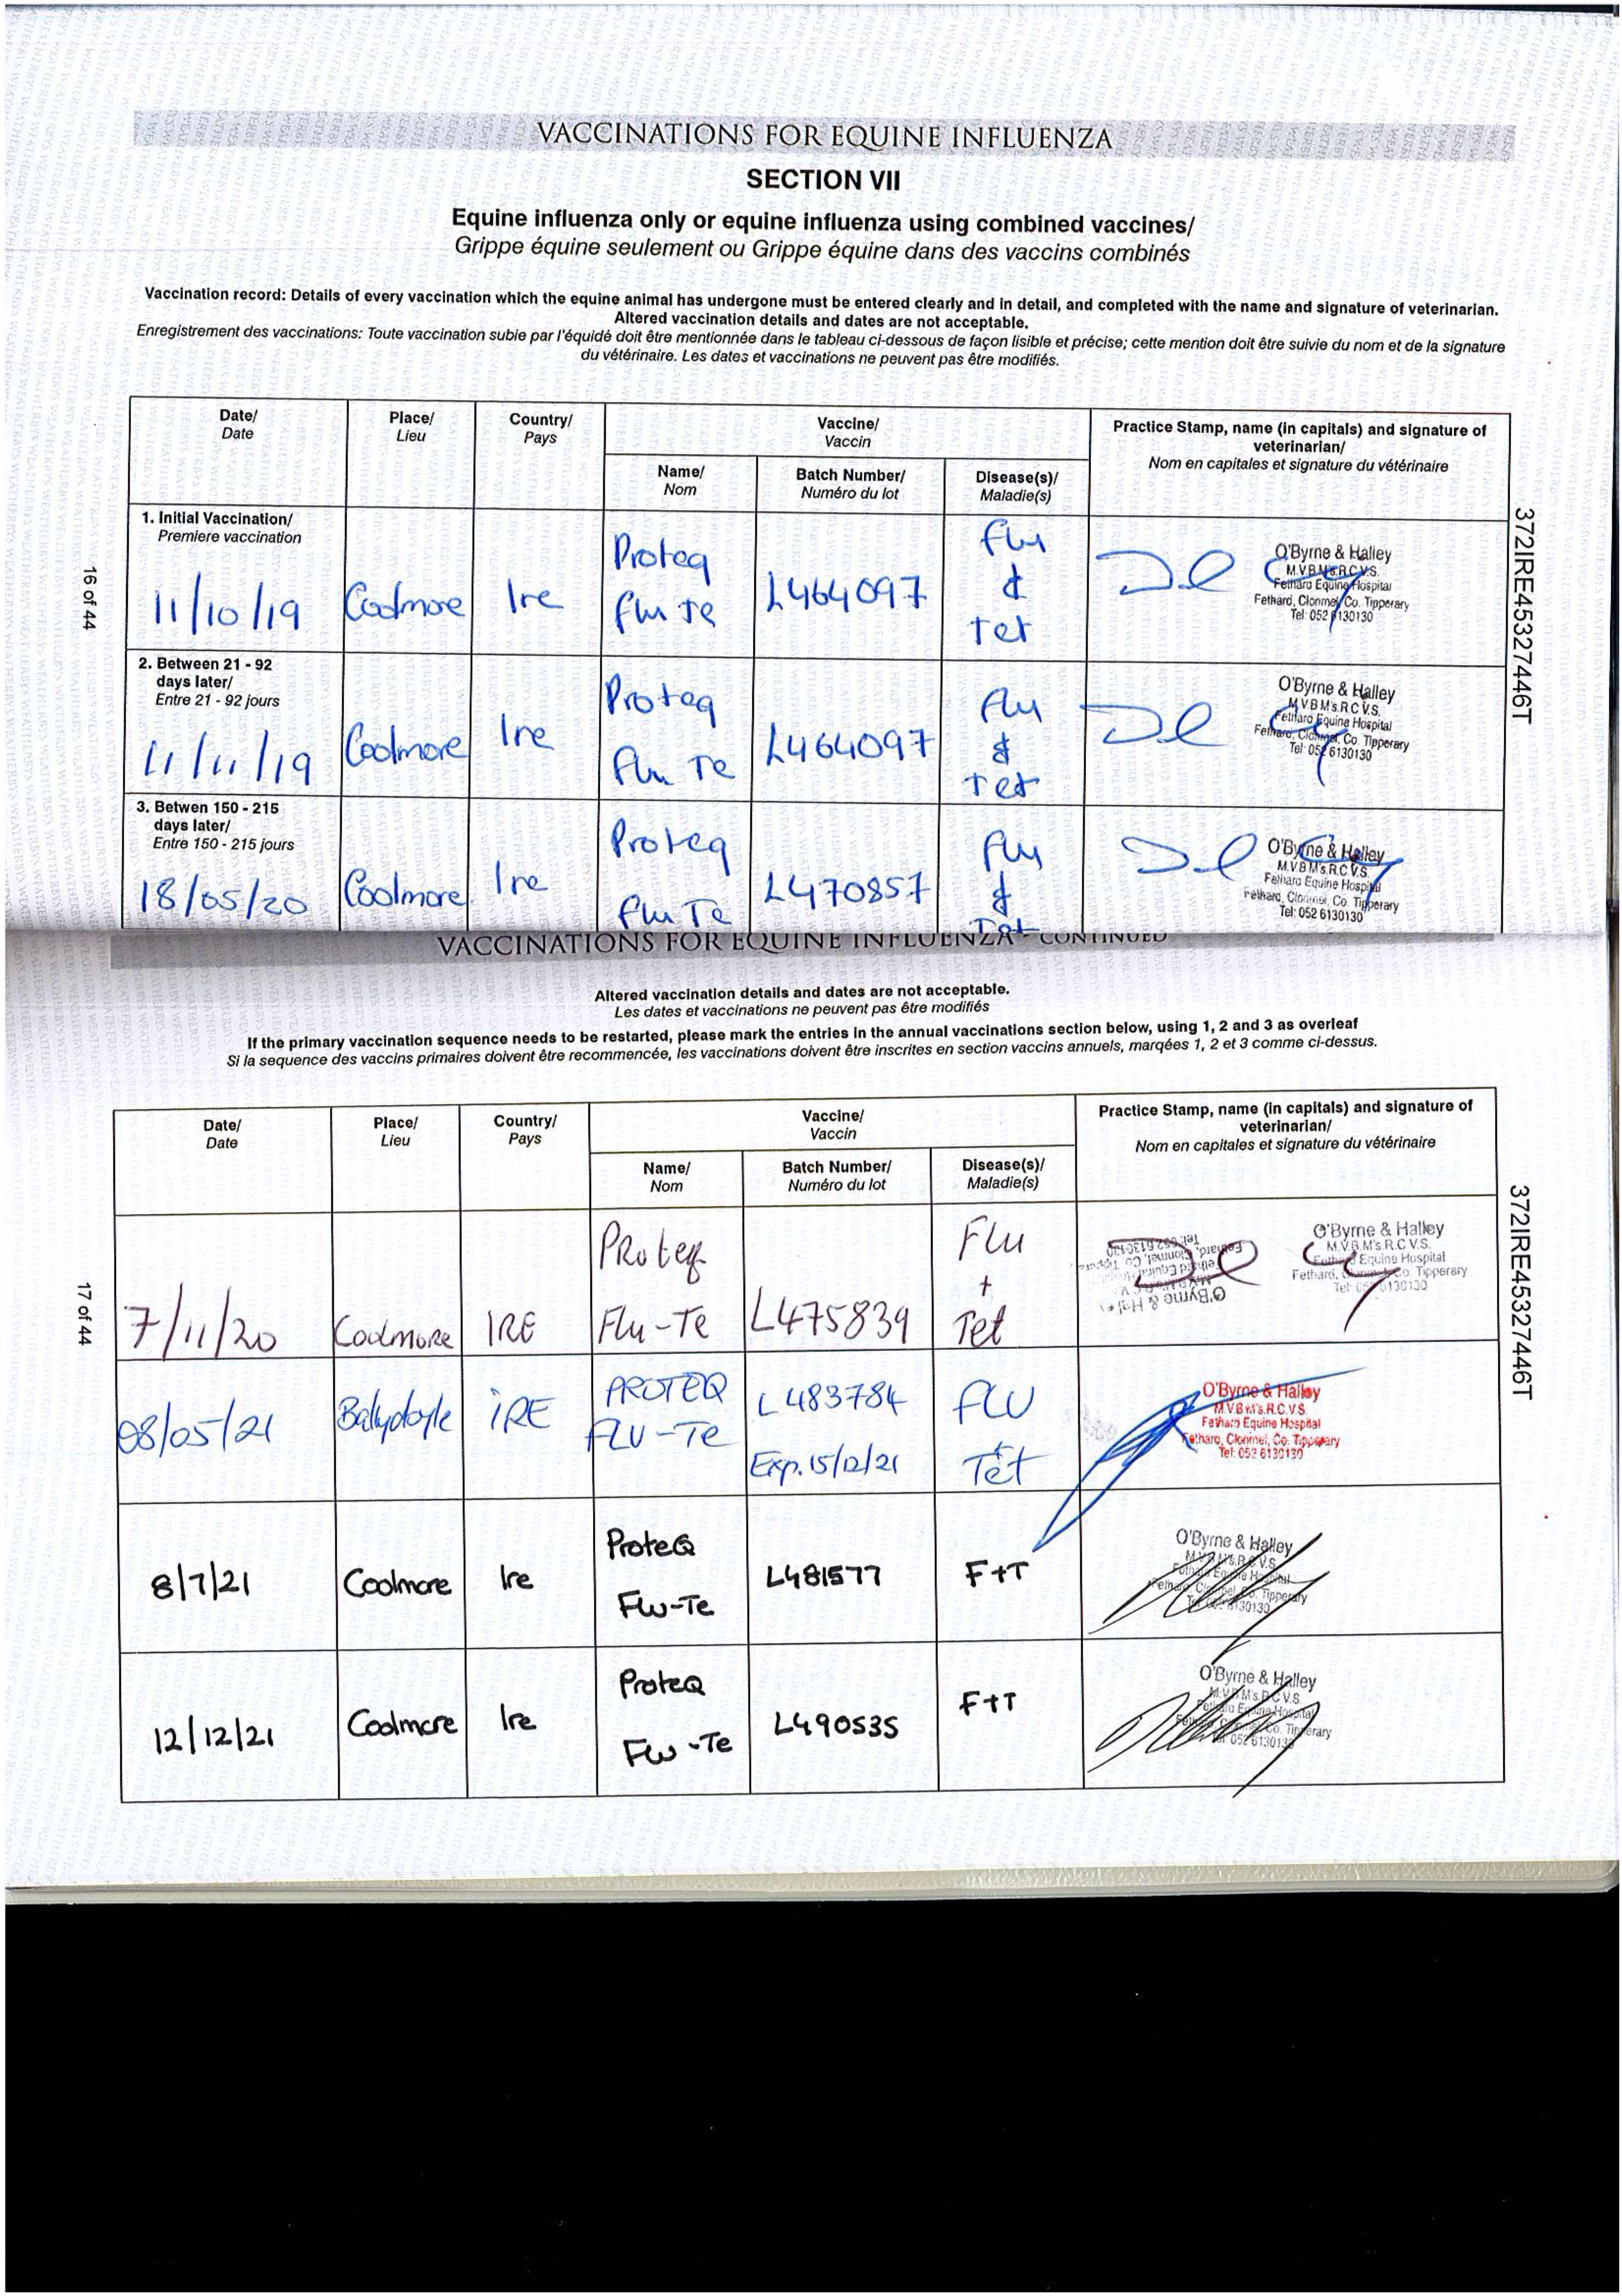 VACCINATIONS FOR EQUINE INFLUENZA
SECTION VII
Equine influenza only or equine influenza using combined vaccines/
Grippe équine seulement ou Grippe équine dans des vaccins combinés
Vaccination record: Details of every vaccination which the equine animal has undergone must be entered clearly and in detail, and completed with the name and signature of veterinarian.
Altered vaccination details and dates are not acceptable.
Enregistrement des vaccinations: Toute vaccination subie par l'équidé doit être mentionnée dans le tableau ci-dessous de façon lisible et précise; cette mention doit être suivie du nom et de la signature
du vétérinaire. Les dates et vaccinations ne peuvent pas être modifiés.
Date/
Date
Place/
Lieu
Country/
Pays
Vaccine/
Vaccin
Name/
Nom
Batch Number/
Numéro du lot
Disease(s)/
Maladie(s)
Practice Stamp, name (in capitals) and signature of
veterinarian/
Nom en capitales et signature du vétérinaire
1. Initial Vaccination/
Premiere vaccination
11/10/19
Coolmore
Ire
Proteq
Flu Te
L464097
Flu
&
Tet
O'Byrne & Halley
M.V.B M's.R.C.V.S.
Fethard Equine Hospital
Fethard, Clonmel, Co. Tipperary
Tel: 052 6130130
2. Between 21 - 92
days later/
Entre 21 - 92 jours
11/11/19
Coolmore
Ire
Proteq
Flu Te
L464097
Flu
&
Tet
O'Byrne & Halley
M.V.B M's.R.C.V.S.
Fethard Equine Hospital
Fethard, Clonmel, Co. Tipperary
Tel: 052 6130130
3. Betwen 150 - 215
days later/
Entre 150 - 215 jours
18/05/20
Coolmore
Ire
Proteq
Flu Te
L470857
Flu
&
Tet
O'Byrne & Halley
M.V.B M's.R.C.V.S.
Fethard Equine Hospital
Fethard, Clonmel, Co. Tipperary
Tel: 052 6130130
16 of 44
372IRE45327446T
VACCINATIONS FOR EQUINE INFLUENZA - CONTINUED
Altered vaccination details and dates are not acceptable.
Les dates et vaccinations ne peuvent pas être modifiés
If the primary vaccination sequence needs to be restarted, please mark the entries in the annual vaccinations section below, using 1, 2 and 3 as overleaf
Si la sequence des vaccins primaires doivent être recommencée, les vaccinations doivent être inscrites en section vaccins annuels, marqées 1, 2 et 3 comme ci-dessus.
Date/
Date
Place/
Lieu
Country/
Pays
Vaccine/
Vaccin
Name/
Nom
Batch Number/
Numéro du lot
Disease(s)/
Maladie(s)
Practice Stamp, name (in capitals) and signature of
veterinarian/
Nom en capitales et signature du vétérinaire
7/11/20
Coolmore
IRE
Proteq
Flu-Te
L475839
Flu
+
Tet
O'Byrne & Halley
M.V.B.M's.R.C.V.S.
Fethard Equine Hospital
Fethard, Clonmel, Co. Tipperary
Tel: 052 6130130
08/05/21
Ballydoyle
iRE
PROTEQ
FLU-Te
L483784
Exp. 15/12/21
FLU
Tet
O'Byrne & Halley
M.V.B M's.R.C.V.S.
Fethard Equine Hospital
Fethard, Clonmel, Co. Tipperary
Tel: 052 6130130
8/7/21
Coolmore
Ire
ProteQ
Flu-Te
L481577
F+T
O'Byrne & Halley
M.V.B M's.R.C.V.S.
Fethard Equine Hospital
Fethard, Clonmel, Co. Tipperary
Tel: 052 6130130
12/12/21
Coolmore
Ire
ProteQ
Flu-Te
L490535
F+T
O'Byrne & Halley
M.V.B M's.R.C.V.S.
Fethard Equine Hospital
Fethard, Clonmel, Co. Tipperary
Tel: 052 6130130
17 of 44
372IRE45327446T